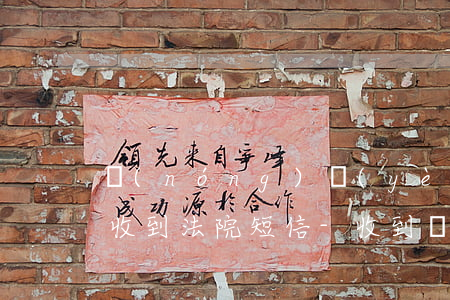 領先来自爭峰
(nóng) (yè
成功源於合作
收到法院短信-收到